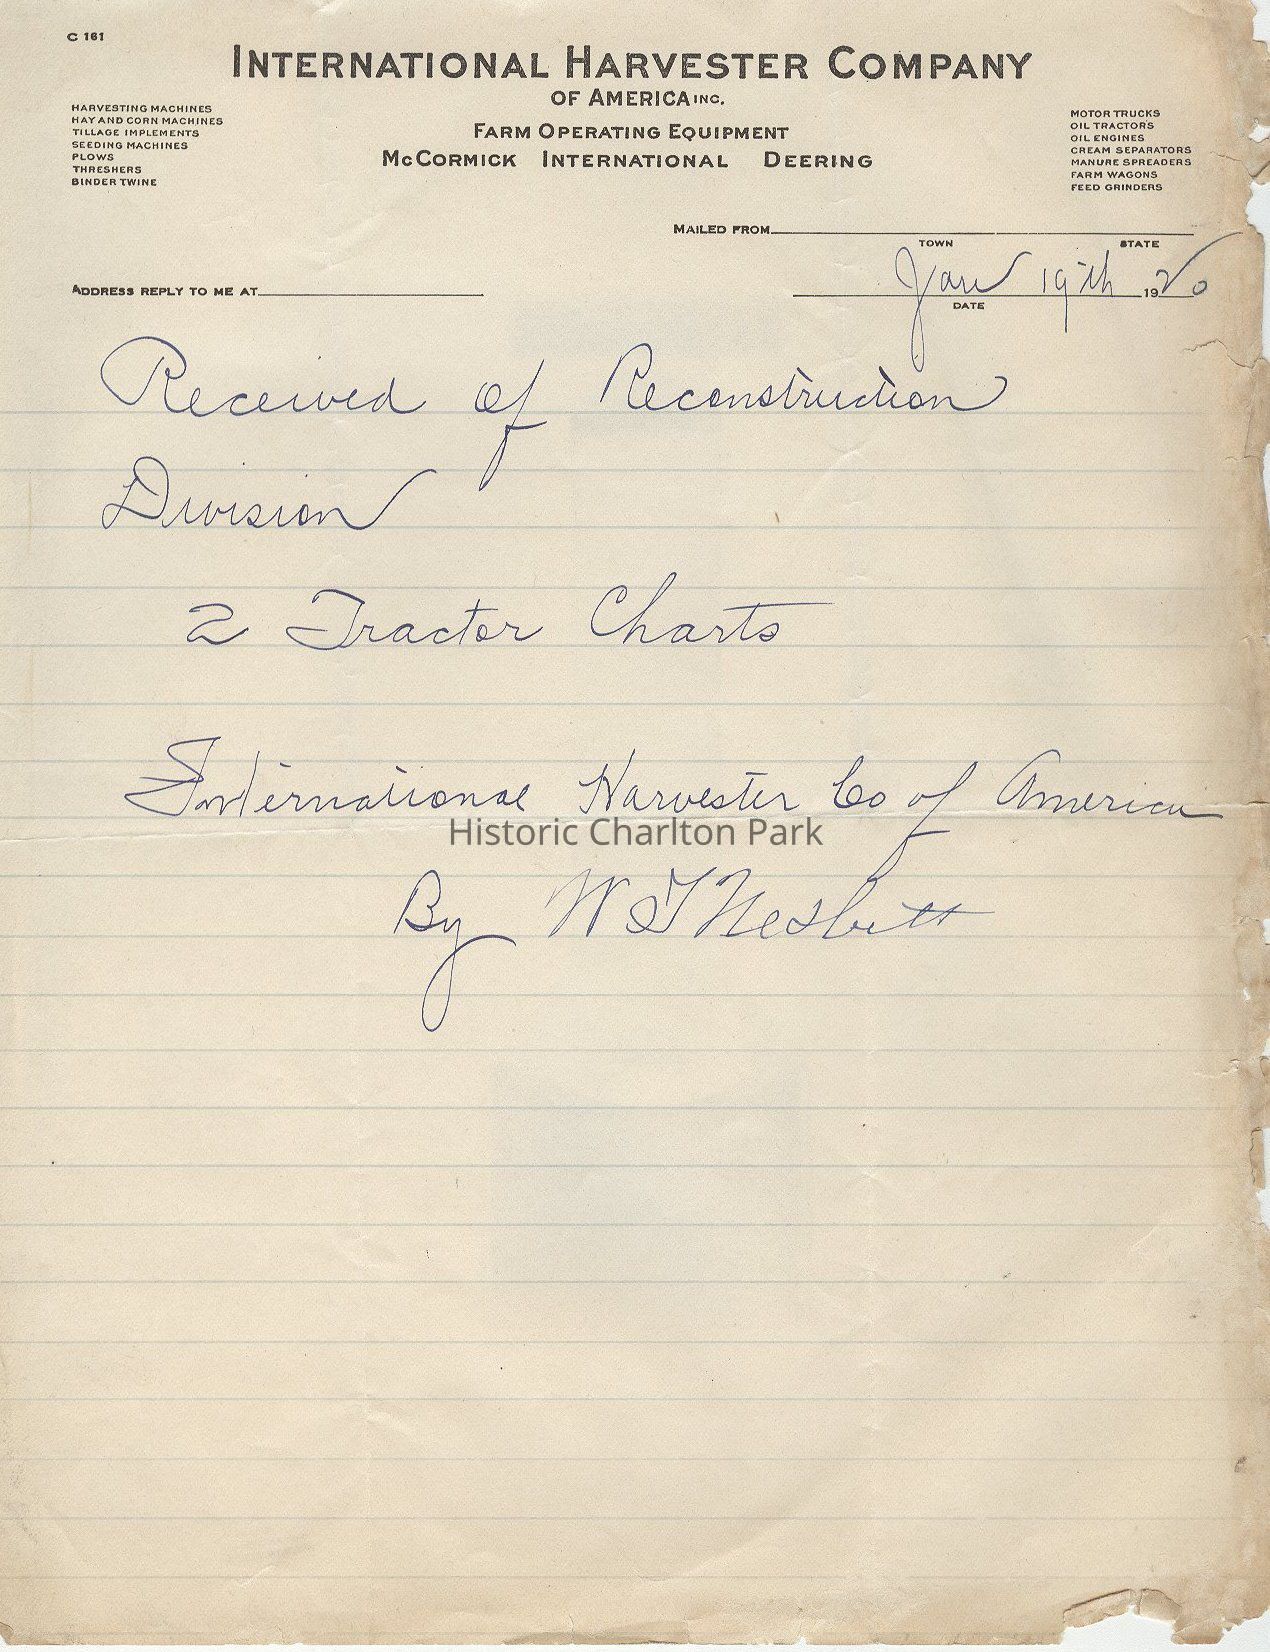 C 161
INTERNATIONAL HARVESTER COMPANY
OF AMERICA INC.
FARM OPERATING EQUIPMENT
MCCORMICK INTERNATIONAL DEERING
HARVESTING MACHINES
HAY AND CORN MACHINES
TILLAGE IMPLEMENTS
SEEDING MACHINES
PLOWS
THRESHERS
BINDER TWINE
MOTOR TRUCKS
OIL TRACTORS
OIL ENGINES
CREAM SEPARATORS
MANURE SPREADERS
FARM WAGONS
FEED GRINDERS
MAILED FROM
TOWN STATE
ADDRESS REPLY TO ME AT
Jan 19th 1920
DATE
Received of Reconstruction
Division
2 Tractor Charts
International Harvester Co of America
Historic Charlton Park
By W T Nesbitt